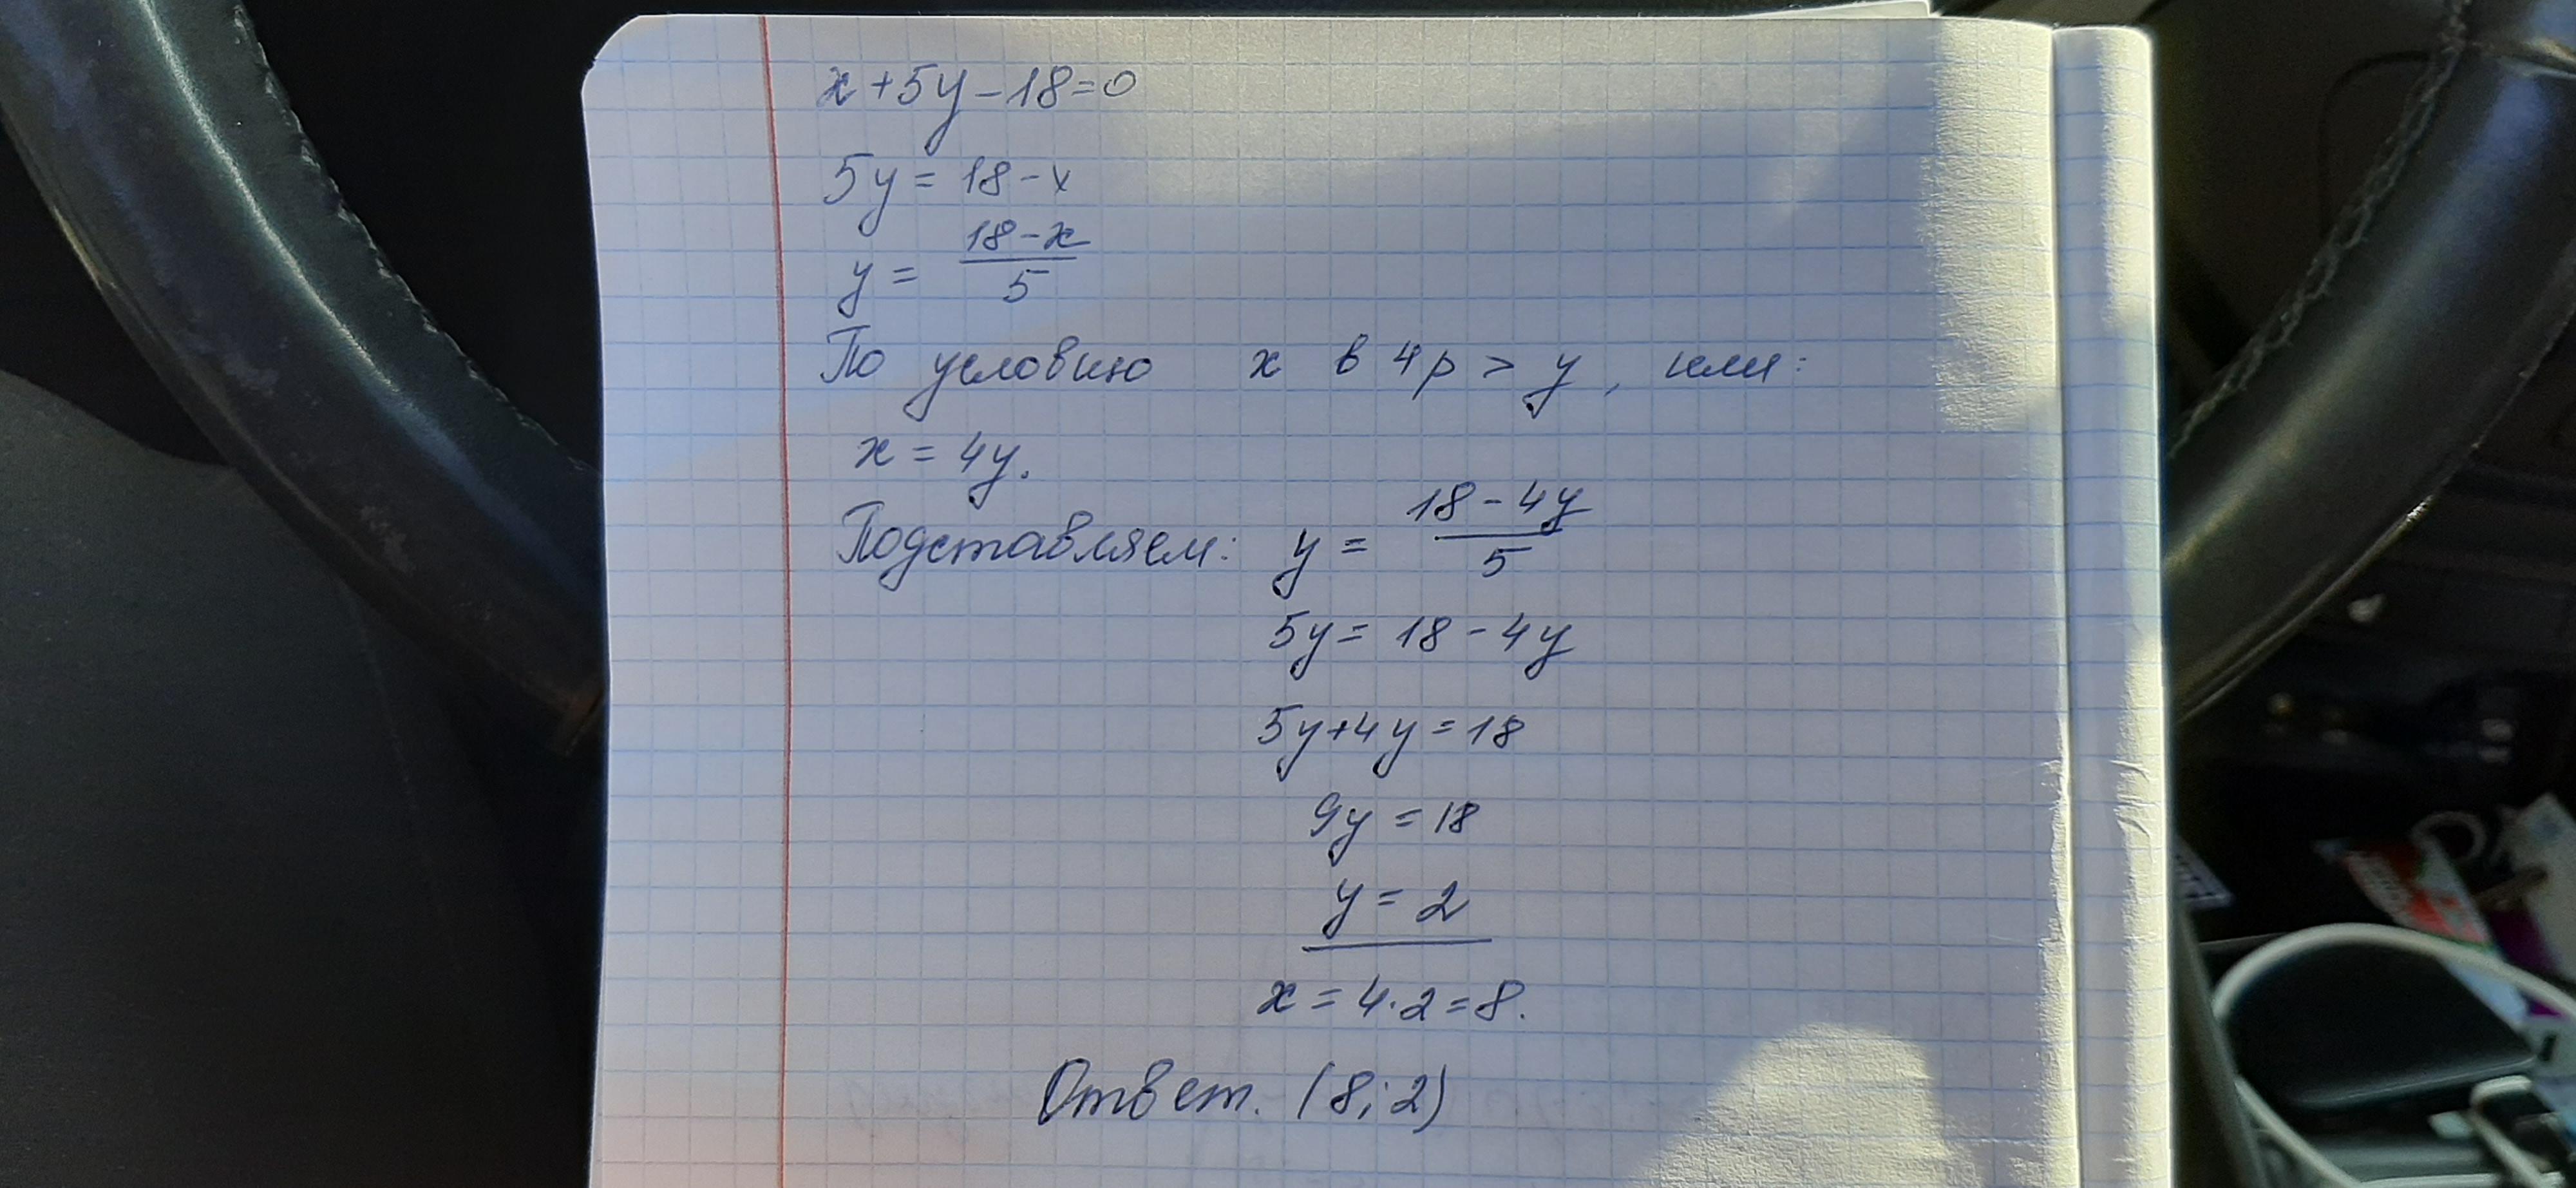 x+5y-18=0
5y = 18-x
y = \frac{18-x}{5}
По условию x в 4р > y, или:
x = 4y.
Подставляем: y = \frac{18-4y}{5}
5y = 18-4y
5y+4y=18
9y = 18
y = 2
x = 4·2=8.
Ответ. (8;2)